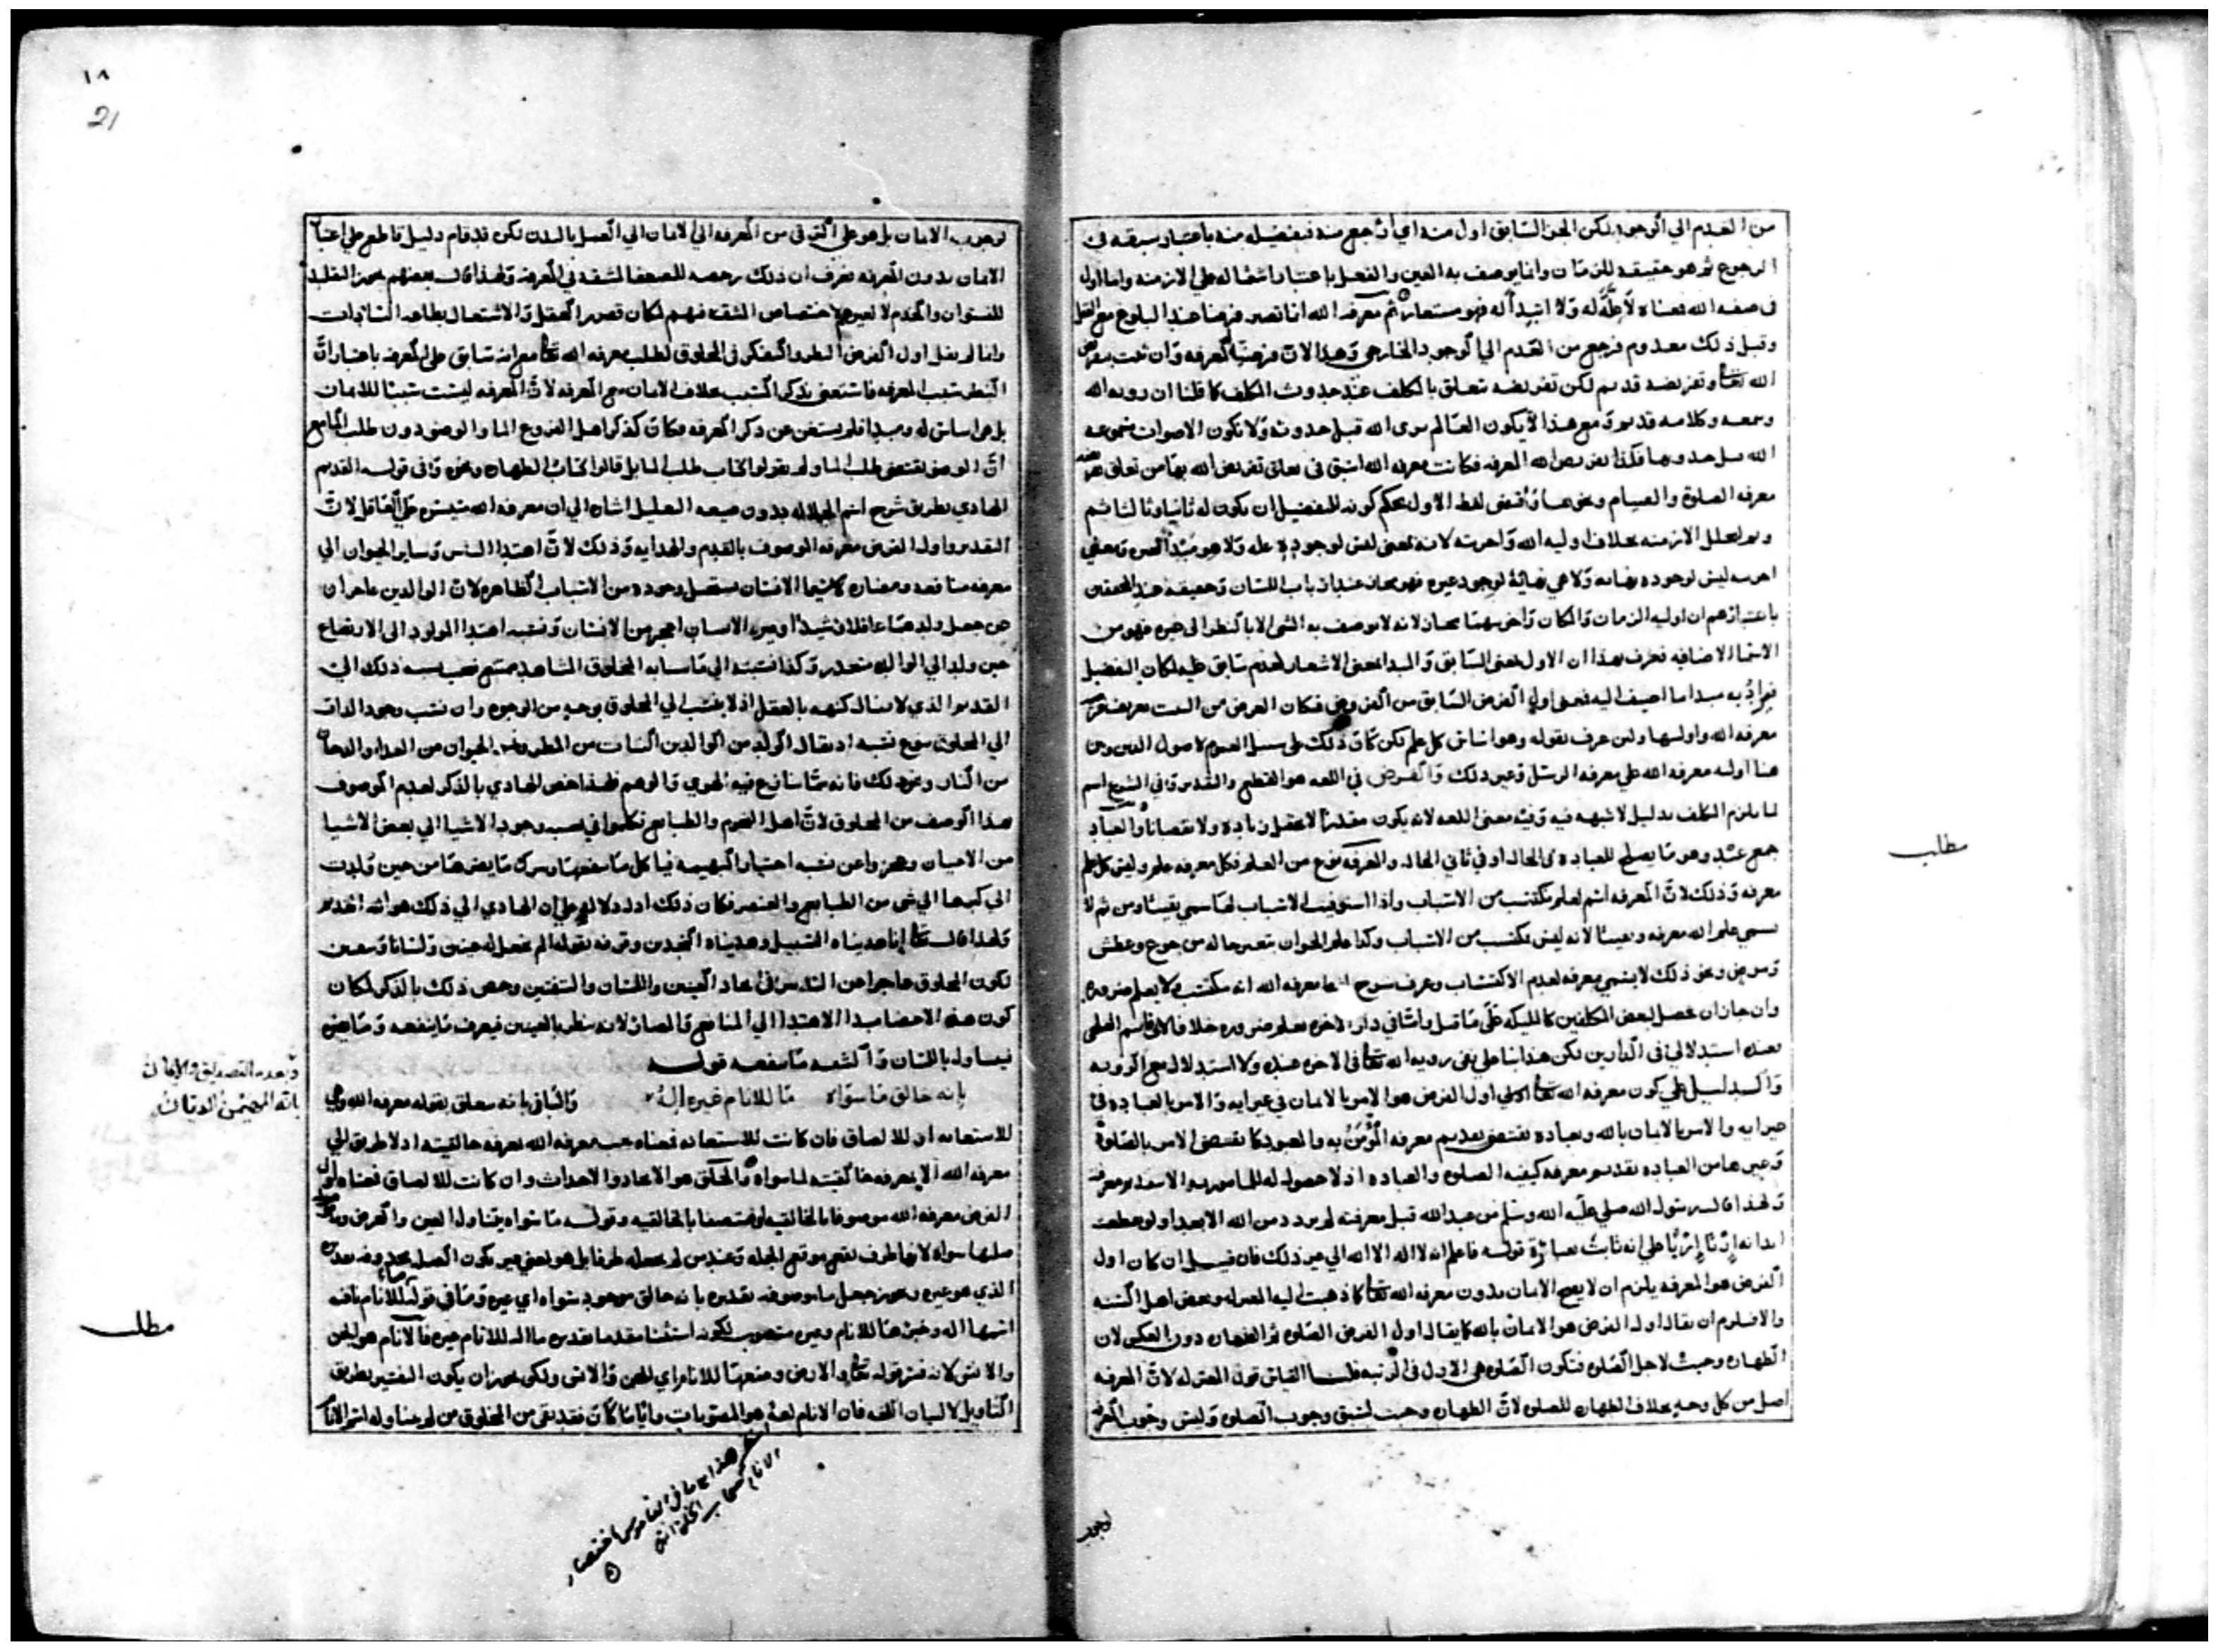 من العدم الي الوجود لكن الجزء السابق اول منه اي ارجع منه فتفضيله منه باعتبار سبقه في
الرجوع ثم هو حقيقة للزمان وانما يوصف به العين والفعل باعتبار اشتماله علي الازمنه واما اول
في صفه الله فمعناه لا علة له ولا ابتدأ له فهو مستعار ثم معرفه الله انما تصير فرضا عند البلوغ مع العقل
وقبل ذلك معدوم فرجع من العدم الي الوجود الخارجي وهذا لان فرضية المعرفه وان ثبت بفرض
الله تعا وتفريضه قديم لكن تفريضه تعلق بالمكلف عند حدوث المكلف كما قلنا ان رويه الله
وسمعه وكلامه قديم ومع هذا لا يكون العالم مرى الله قبل حدوثه ولا تكون الاصوات مسموعه
الله قبل حدوثها فكذا تفريض الله المعرفه فكانت معرفه الله اسبق في تعلق تفريض الله بها من تعلق
معرفه الصلوة والصيام ونحوهما واقتضى لفظ الاول بحكم كونه للتفضيل ان يكون له ثانيا وثالثا ثم
ولم يتخلل الازمنه بخلاف اوليه الله واخريته لانه بمعنى ليس لوجوده علة ولا هو مبدأ لغيره ومعنى
اخريته ليس لوجوده نهايه ولا هي نهاية لوجود غيره فهو مجاز عند ارباب اللسان وحقيقة عند المحققين
باعتبارهم ان اوليه الزمان والمكان واخريتهما مجاز لانه لا يوصف به الشي الا بالنظر الى غيره فهو من
الاسما الاضافيه فعرف بهذا ان الاول بمعنى السابق والمبدا بمعنى الاشعار لعدم سابق عليه لكان التفضيل
فيراد به مبدا ما اضيف اليه فمعنى اول الفرض السابق من الفروض فكان الغرض من البيت تعريف
معرفه الله واوليتها ولئن عرف بقوله وهو اساس كل علم لكن كان ذلك على سبيل العموم لاصول الدين وبين
هنا اوليه معرفه الله علي معرفه الرسل وغير ذلك والفرض في اللغه هو القطع والتقدير وفي الشرع اسم
لما يلزم المكلف بدليل لا شبهه فيه وفيه معنى اللغه لانه يكون مقدرا لا يحتمل زياده ولا نقصانا والعباد
جمع عبد وهو ما يصلح للعباده في الحال او في ثاني الحال والمعرفه نوع من العلم فكل معرفه علم وليس كل علم
معرفه وذلك لان المعرفه اسم لعلم مكتسب من الاسباب واذا استوفيت الاسباب لها سمي يقينا ومن ثم لا
يسمي علم الله معرفه ويقينا لانه ليس مكتسب من الاسباب وكذا علم الحيوان بتغير حاله من جوع وعطش
ومرض ونحو ذلك لا يسمي معرفه لعدم الاكتساب وعرف بشرح انها معرفه الله انه مكتسب لا يعلم ضروره
وان جاز ان يحصل لبعض المكلفين كالمليكه على ما قيل واما في دار الاخره نعلم ضروره خلافا لابي قاسم البلخي
فعنده استدلالي في الدارين لكن هذا بناء علي نفي رويه الله تعا في الاخره عنده ولا استدلال مع الرويه
والدليل علي كون معرفه الله تعا اولي اول الفرض هو الامر بالايمان في غير ايه والامر بالعباده في
غير ايه والامر بالايمان بالله وبعباده يقتضي تقديم معرفه المؤمن به والمعبود كما يقتضي الامر بالصلوة
وغيرها من العباده تقديم معرفه كيفيه الصلوه والعباده اذ لا حصول له للمامور به الا بتقديم معرفته
ولهذا قال رسول الله صلي عليه الله وسلم من عبد الله قبل معرفته لم يزدد من الله الا بعدا ولو قطعت
ابدانه إربا إربا علي انه ثابت بعبارة قوله فاعلم انه لا اله الا الله الي غير ذلك فان قيل ان كان اول
الفرض هو المعرفه يلزم ان لا يصح الايمان بدون معرفه الله تعا كما ذهبت اليه المعتزله وبعض اهل السنه
والا فيلزم ان يقال اول الفرض هو الايمان بالله كما يقال اول الفرض الصلوه ثم الطهاره دون العكس لان
الطهاره وجبت لاجل الصلوه فتكون الصلوه هي الاول في الرتبه قلنا القياس قول المعتزله لان المعرفه
اصل من كل وجه بخلاف الطهاره للصلوه لان الطهاره وجبت لسبق وجوب الصلوه وليس وجوب المعرفه
مطلب
لوجوب
١٨
21
لوجوب الايمان بل هو علي الترقي من المعرفه الي الايمان الي العمل بالبدن لكن قد قام دليل قاطع علي اعتبار
الايمان بدون المعرفه فعرف ان ذلك رخصه للضعفا لمشقه في المعرفه ولهذا قال بعضهم يجوز التقليد
للنسوان والخدم لا لغيرهم لاختصاص المشقه فيهم لمكان قصور العقل والاشتغال بطاعه السادات
وانما لم يقل اول الفرض النظر والتفكر في المخلوق لطلب معرفه الله تعا مع انه سابق علي المعرفه باعتبار ان
النظر سبب المعرفه فاستغني بذكر المسبب بخلاف الايمان مع المعرفه لان المعرفه ليست سببا للايمان
بل هي اساس له ومبدا فلم يستغن عن ذكر المعرفه فكان كذكر اهل الفروع الماء والوضوء دون طلب الماء مع
ان الوضو يقتضي طلب الماء ولم يقولوا كتاب طلب الماء بل قالوا كتاب الطهاره ونحوه وفي قوله القديم
الهادي بطريق شرح اسم الجلاله بدون صيغه التعليل اشاره الي ان معرفه الله متيسره علي العاقل لان
التقدير واول الفرض معرفه الموصوف بالقدم والهدايه وذلك لان اهتدا الناس وساير الحيوان الي
معرفه منافعه ومضاره لا سيما الانسان يستحيل وجوده من الاسباب الظاهره لان الوالدين عاجزان
عن جعل ولدهما عاقلا رشيدا وغير الانسان اعجز من الانسان ونسبه اهتدا المولود الى الارتضاع
حين ولد الي الوالد متعذر وكذا نسبته الي ما سايه المخلوق المشاهد ممتنع فيجب نسبه ذلك الي
القديم الذي لا ينال كنهه بالعقل اذ لا ينسب الي المخلوق بوجه من الوجوه وان نسب وجود الذات
الي المخلوق بنوع نسبه اذ يقال الولد من الوالدين النبات من المطر ونمو الحيوان من الغذاء والدخان
من النار ونحو ذلك فانه مما ينازع فيه الهوي والوهم فلهذا خص الهادي بالذكر لعدم الموصوف
بهذا الوصف من المخلوق لان اهل النجوم والطبايع تكلموا في نسب وجود الاشيا الي بعض الاشيا
من الاعيان وعجزوا عن نسبه اختيار البهيمه فيما كل ما ينفعها وترك ما يضرها من حين ولدت
الي كبرها الي شي من الطبايع والعنصر فكان ذلك ادل دلاله علي ان الهادي الي ذلك هو الله القدير
ولهذا قال تعا إنا هديناه السبيل وهديناه النجدين وقرنه بقوله الم نجعل له عينين ولسانا وشفتين
لكون المخلوق عاجزا عن التاثير في ايجاد العينين واللسان والشفتين وخص ذلك بالذكر لمكان
كون هذه الاعضا مبدا الاهتدا الي المنافع والمضار لانه ينظر بالعينين فيعرف ما ينفعه وما يضره
فيتناول باللسان والشفه ما ينفعه قوله
بانه خالق ما سواه ما للانام غيره إله والبا في بانه متعلق بقوله معرفه الله وهي
للاستعانه او للالصاق فان كانت للاستعانه فمعناه يجب معرفه الله بمعرفه خالقيته اذ لا طريق الي
معرفه الله الا بمعرفه خالقيته لما سواه والخلق هو الايجاد والاحداث وان كانت للالصاق فمعناه اول
الفرض معرفه الله موصوفا بالخالقيه او متصفا بالخالقيه وقوله ما سواه يتناول العين والعرض
صلها سواه لانها ظرف تقع موقع الجمله وعند من لم يجعله ظرفا بل هو بمعنى غير يكون الصله محذوفه تقديره
الذي هو غيره ويجوز جعل ما موصوفه تقديره بانه خالق موجود سواه اي غيره وما في قوله ما للانام نافيه
اسمها اله وخبرها للانام وغير منصوب لكونه استثنا مقدما تقديره ما اله للانام غيره فالانام هو الجن
والانس لانه فسر قوله تعا والارض وضعها للانام اي للجن والانس ولكن يجوز ان يكون التفسير بطريق
التاويل لا لبيان اللغه فان الانام لغة هو المصوتات وايا ما كان فقد بقي من المخلوق من لم يتناوله اسم الانام
وبعده التصديق والايمان
بانه المهيمن الديان
مطلب
انظر هذا مع ما في القاموس باختصار
الانام كسحاب الخلق انتهى